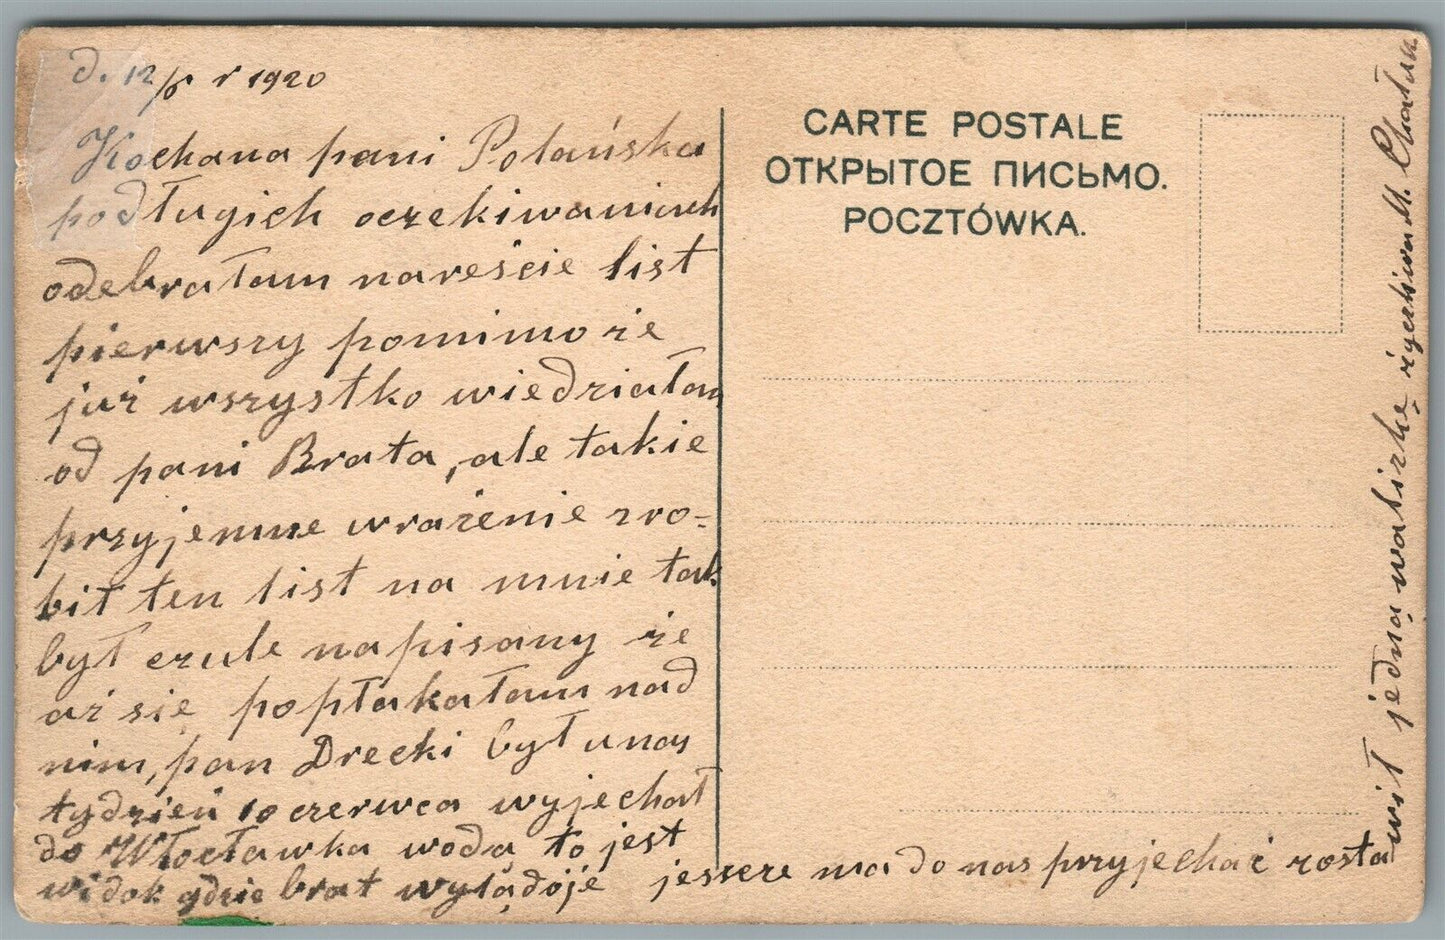 d. 12/6 r 1920
Kochana pani Polańska
podługich oczekiwaniach
odebrałam nareście list
pierwszy pomimo że
już wszystko wiedziałam
od pani Brata, ale takie
przyjemne wrażenie zro=
bił ten list na mnie tak
był czule napisany że
aż się popłakałam nad
nim, pan Drecki był unas
tydzień 10 czerwca wyjechał
do Włocławka wodą to jest
widok gdzie brat wylądóje jeszcze ma do nas przyjechać zosta
wił jedną walizkę życzliwa M.
CARTE POSTALE
ОТКРЫТОЕ ПИСЬМО.
POCZTÓWKA.